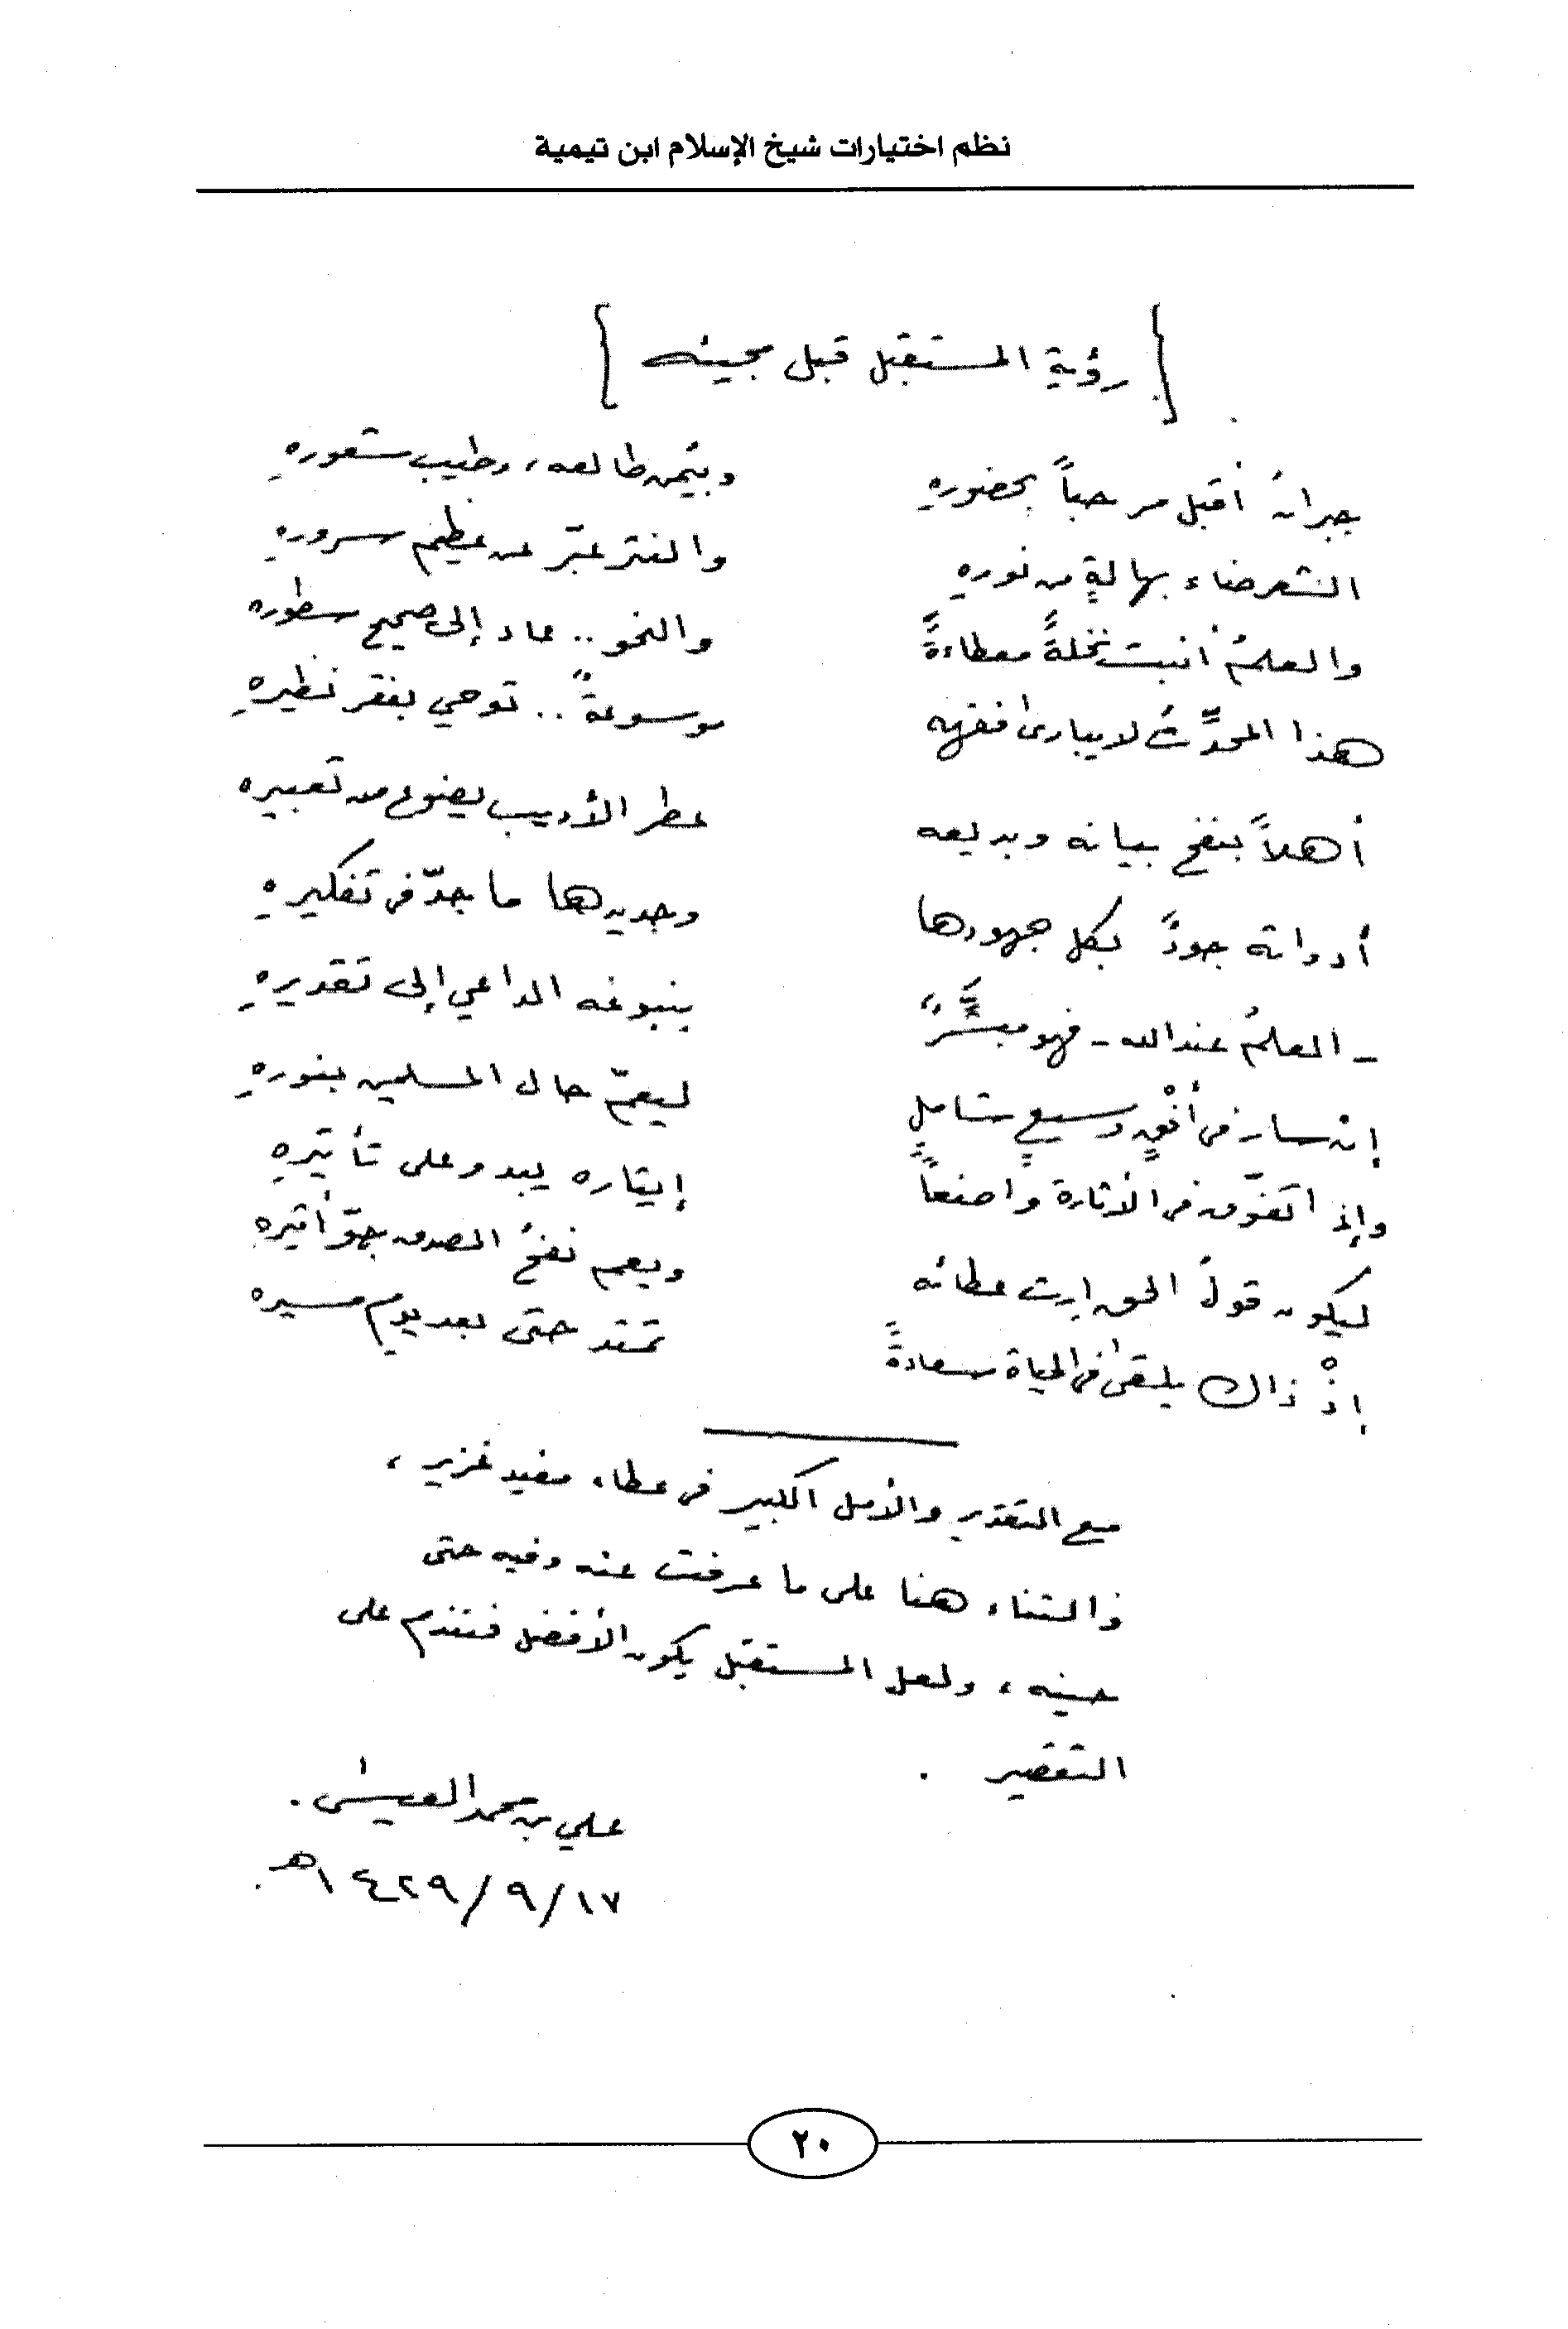 نظم اختيارات شيخ الإسلام ابن تيمية
{ رؤية المستقبل قبل مجيئه }
جبرانُ أقبل مرحباً بحضورهِ وبيُمن طالعه، وطيب شعورهِ
الشعر ضاء بهالةٍ من نورهِ والنثر عبّر عن عظيم سرورهِ
والعلمُ أنبت نخلةً معطاءةً والنحو.. عاد إلى صحيح سطوره
هذا المحدِّثُ لا يبارى فقهه موسوعةٌ.. توحي بفقر نظيرهِ
أهلاً بنفح بيانه وبديعه عطر الأديب يضوع من تعبيره
أدواته جودٌ بكل جهودها وجديدها ما جدّ في تفكيرهِ
- العلمُ عند الله - فهو مبشَّرٌ بنبوغه الداعي إلى تقديرهِ
إن سار في أفْقٍ وسيعٍ شاملٍ ليعمّ حال المسلمين بنورهِ
وإذا تفوّق في الأثارة واضعاً إيثاره يبدو على تأثيرهِ
ليكون قولُ الحق إرث عطائه ويعم نفحُ الصدق جوّ أثيره
إذْ ذاك يلقى في الحياة سعادةً تمتد حتى بعد يوم مسيره
مع التقدير والأمل الكبير في عطاء مفيد غزير،
فالثناء هنا على ما عرفت عنه وفيه حتى
حينه، ولعل المستقبل يكون الأفضل فنندم على
التقصير.
علي بن محمد العيسى.
١٧/٩/١٤٢٩هـ.
٢٠